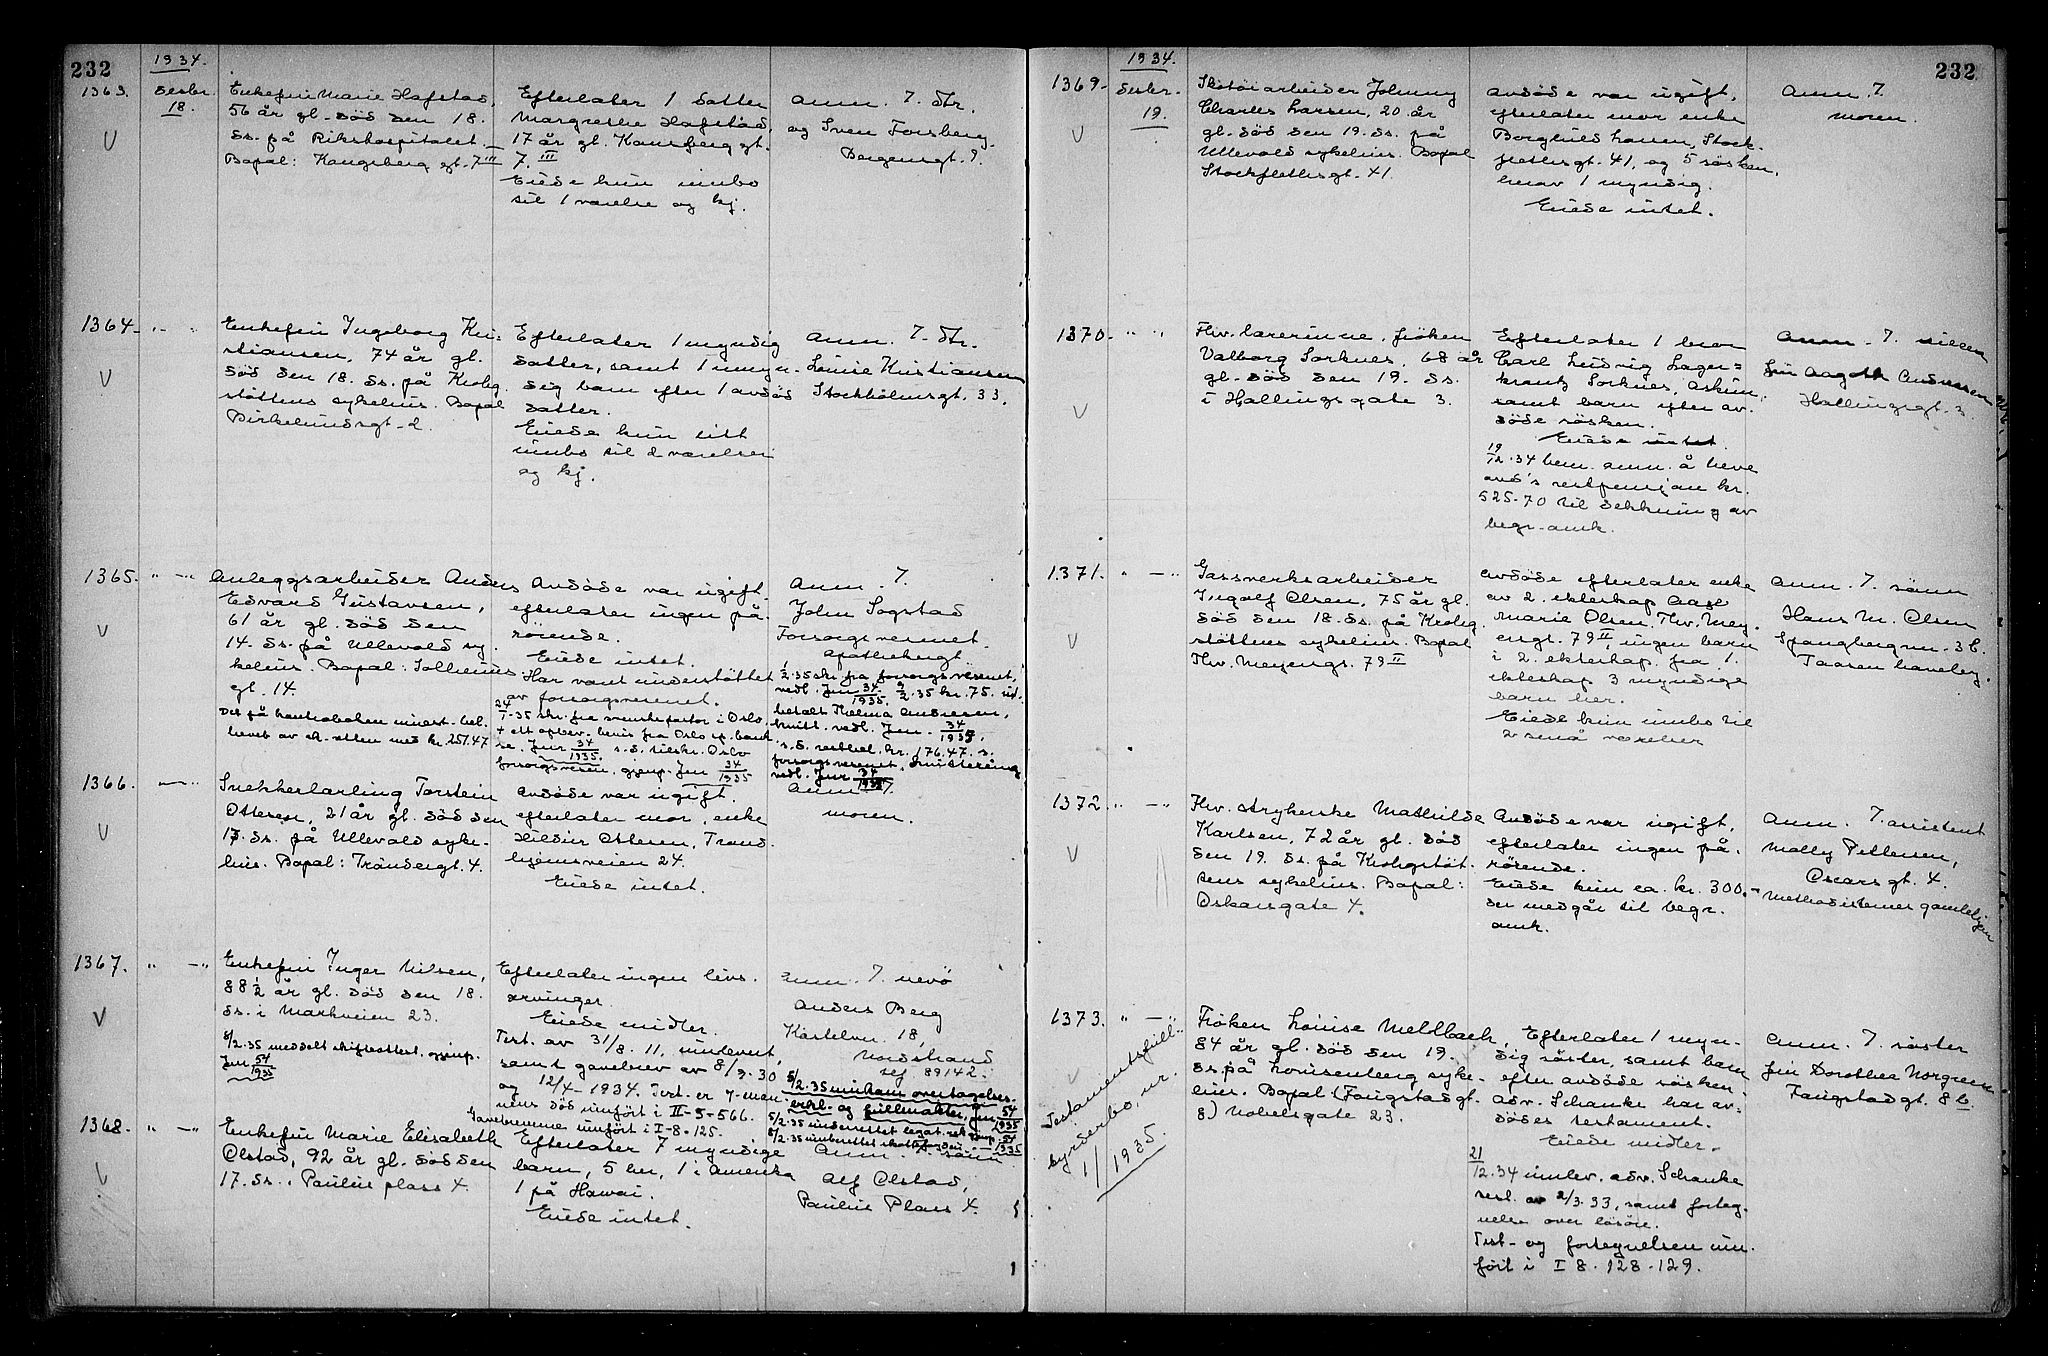 232
1934.
1363.
Desbr.
18.
Enkefru Marie Hafstad,
56 år gl. död den 18.
ds. på Rikshospitalet.
Bopal: Kongsberg gt. 7 III
Efterlater 1 datter
Margrethe Hafstad,
17 år gl. Konsberg gt.
7. III
Eiede kun innbo
til 1 værelse og kj.
Anm. 7. Dtr.
og Sven Forsberg
Bergensgt. 9.
1364.
Enkefru Ingeborg Kri=
stiansen, 74 år gl.
död den 18. ds. på Krohg.
stöttens sykehus. Bopal
Birkelundsgt. 2.
Efterlater 1 myndig
datter, samt 1 myn-
dig barn efter 1 avdöd
datter.
Eiede kun litt
innbo til 2 værelser
og kj.
Anm. 7. Dtr.
Louise Kristiansen
Stockholmsgt. 33.
1365.
Anleggsarbeider Anders
Edvard Gustavsen,
61 år gl. död den
14. ds. på Ullevold sy-
kehus. Bopal: Solheims
gt. 14.
Det på kontraboken innest. bel.
hevet av sk.retten med kr. 251.47
Avdöde var ugift.
efterlater ingen på-
rörende.
Eiede intet.
Har vært understöttet
av forsorgsvesenet.
24/1-35 skr. fra svenske pastor i Oslo,
+ ett opbev. bevis fra Oslo sp. bank
se. Jnr 34/1935. s.d. tilskr. Oslo
forsorgsvesen, gjenp. Jnr 34/1935
Anm. 7.
John Sogstad
Forsorgsvesenet
Apothekergt.
1/2.35 skr. fra forsorgsvesenet,
vedl. Jnr 34/1935. 9/2.35 kr. 75. ut.
betalt Thelma Andresen,
kvitt. vedl. Jnr. 34/1935,
s.d. restbel. kr. 176.47. s.
forsorgsvesenet. kvittering
vedl. Jnr 34/1935
1366.
Snekkerlærling Torstein
Ottesen, 21 år gl. död den
17. ds. på Ullevold syke-
hus. Bopal: Tröndergt. 4.
Avdöde var ugift.
efterlater mor, enke
Hildur Ottesen, Trond-
hjemsveien 24.
Eiede intet.
Anm. 7.
moren.
1367.
Enkefru Inger Nilsen,
88 1/2 år gl. död den 18.
ds. i Markveien 23.
8/2.35 meddelt skifteattest. gjenp.
Jnr 54/1935
Efterlater ingen livs.
arvinger.
Eiede midler.
Test. av 31/8. 11, innlevert,
samt gavebrev av 8/9.30
og 12/4-1934. Test. er
nens död innfört i II-5-566.
Gavebrevene innfört i I-8-125.
Anm. 7. nevö
Anders Berg
Kastelvn. 18,
Nordstrand
tlf 89142.
5/2.35 innkom overtagelses-
erkl. og fullmakter, Jnr 54/1935
5/2.35 underrettet legat. gjenp. 54/1935
1368.
Enkefru Marie Elisabeth
Olstad, 92 år gl. död den
17. ds. i Paulus plass 4.
Efterlater 7 myndige
barn, 5 her, 1 i Amerika
1 på Hawai.
Eiede intet.
Anm. 7. sönn
Alf Olstad,
Paulus Plass 4.
232
1934.
1369.
Desbr.
19.
Skotöiarbeider Johnny
Charles Larsen, 20 år
gl. död den 19. ds. på
Ullevold sykehus. Bopal
Stockflethsgt. 41.
Avdöde var ugift,
efterlater mor enke
Borghild Larsen, Stock-
flethsgt. 41, og 5 sösken,
herav 1 myndig.
Eiede intet.
Anm. 7.
moren.
1370.
Fhv. lærerinne, fröken
Valborg Sorknes, 68 år
gl. död den 19. ds.
i Hallingsgate 3.
Efterlater 1 bror
Carl Ludvig Lager=
krantz Sorknes, Askim,
samt barn efter av-
döde sösken.
Eiede intet.
19/12.34 bem. anm. å heve
avd's restpensjon kr.
525-70 til dekkning av
begr. omk.
Anm. 7. niesen
fru Aagoth Andresen
Hallingsgt. 3.
1371.
Gassverksarbeider
Ingolf Olsen, 75 år gl.
död den 18. ds. på Krohg.
stöttens sykehus. Bopal
Thv. Meyengt. 79 II
Avdöde efterlater enke
av 2. ekteskap Aase
Marie Olsen, Thv. Mey.
engt. 79 II, ingen barn
i 2. ekteskap. fra 1.
ekteskap 3 myndige
barn her.
Eiede kun innbo til
2 små værelser
Anm. 7. sönn
Hans M. Olsen
Spangbergvn. 3 b.
Taasen haveby.
1372.
Fhv. strykerske Mathilde
Karlsen, 72 år gl. död
den 19. ds. på Krohgstöt-
tens sykehus. Bopal:
Oskarsgate 4.
Avdöde var ugift,
efterlater ingen på-
rörende.
Eiede kun ca. kr. 300.-
der medgår til begr.
omk.
Anm. 7. assistent
Molly Pettersen,
Oscarsgt. 4.
Methodisternes gamlehjem
1373.
Testamentsfull-
byrderbo, nr.
1/1935.
Fröken Louise Meldbach,
84 år gl. död den 19.
ds. på Lovisenberg syke-
hus. Bopal: (Faugstadgt.
8) Nobelsgate 23.
Efterlater 1 myn-
dig söster, samt barn
efter avdöde sösken
Adv. Schanke har av-
dödes testament.
Eiede midler.
21/12.34 innlev. adv. Schanke
test. av 2/3.33, samt forteg-
nelse over lösöre.
Test. og fortegnelsen inn-
fört i I 8. 128-129.
Anm. 7. söster
fru Dorothea Norgrens
Faugstadgt. 8 b.